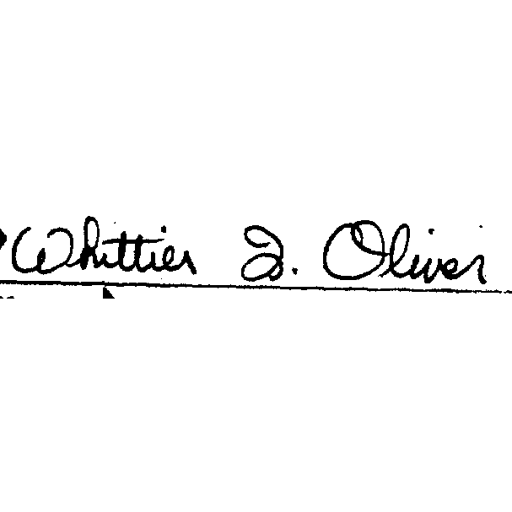 Whittier J. Oliver